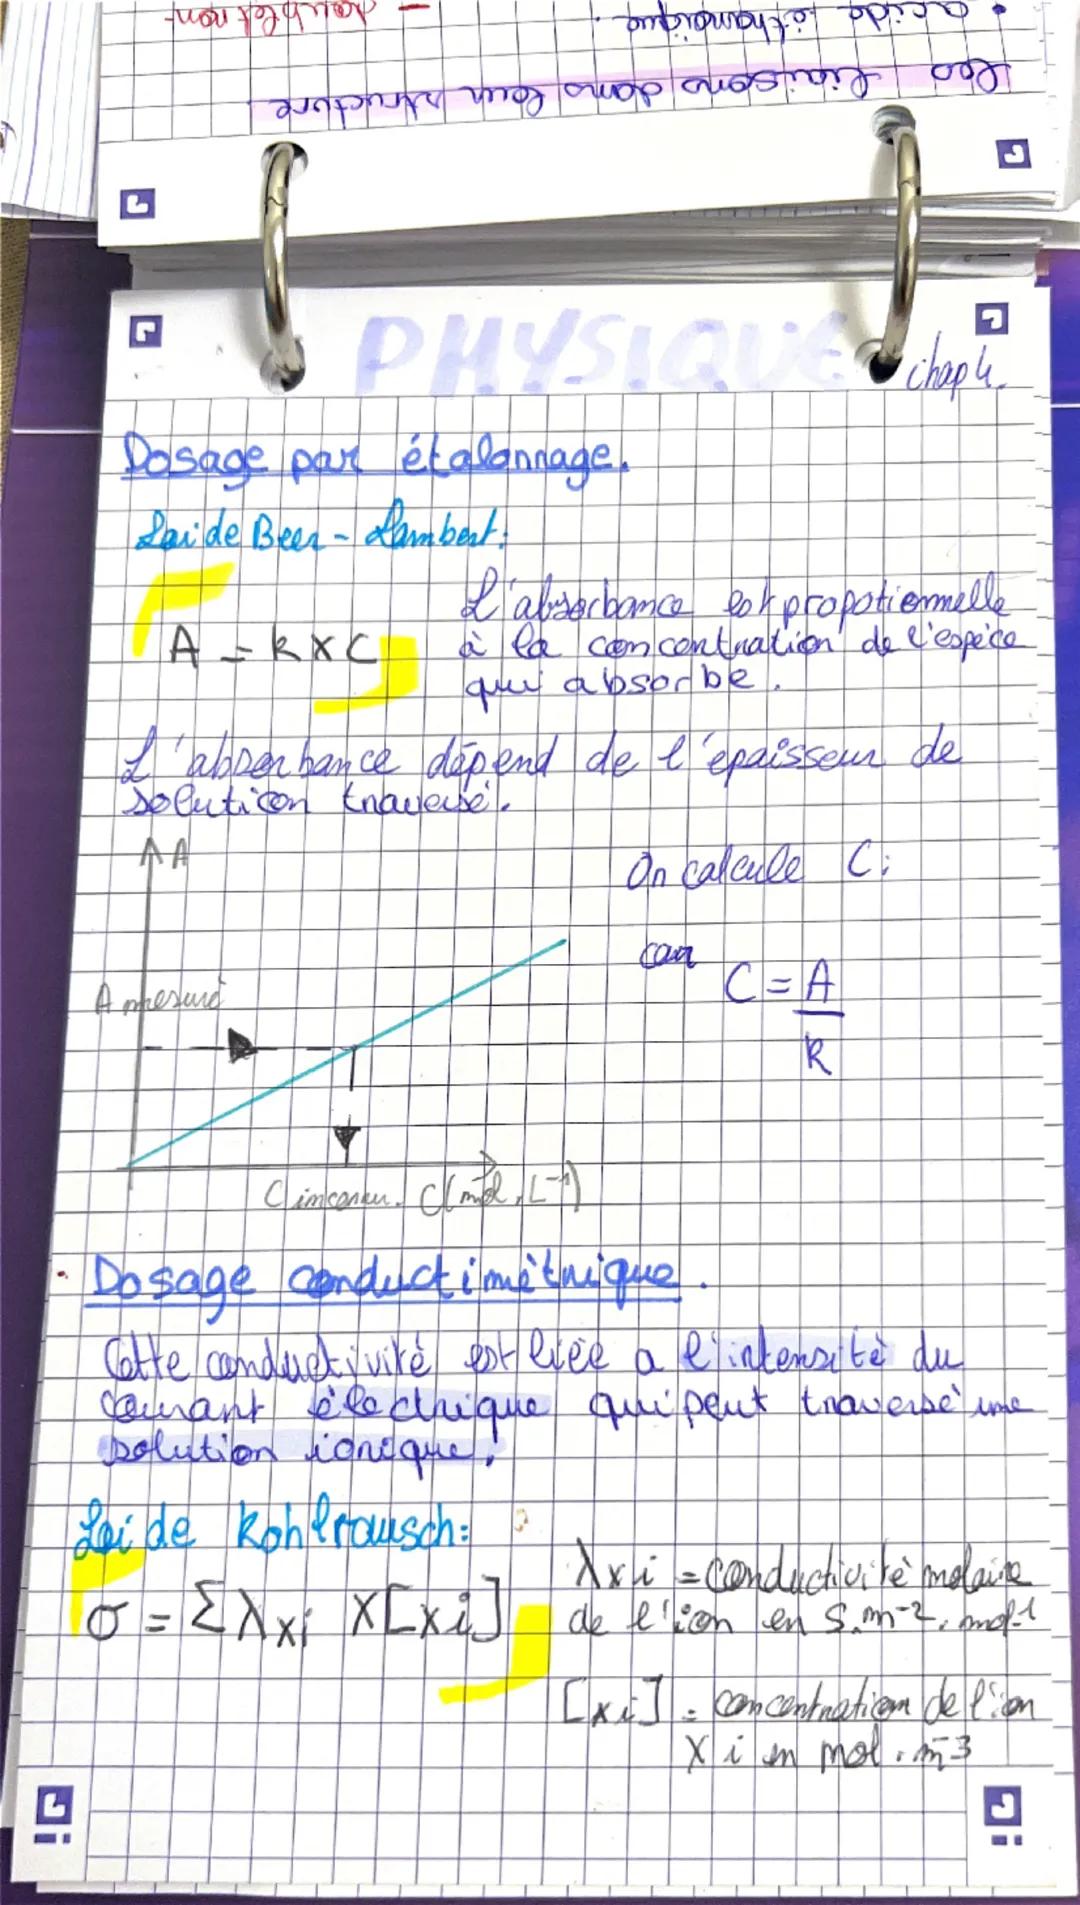 doublet non-
• acide éthanoïque.
les liaisons dans leur structure
PHYSIQUE
chap 4.
Dosage par étalonnage.
Loi de Beer-Lambert:
A = k x C
L'absorbance est propotiennelle
à la concentration de l'espèce
qui absorbe.
L'absorbance dépend de l'épaisseur de
solution traversé.
A
On calcule C:
car
C = A
k
A mesuré
C inconnu. C(mol.L-1)
Dosage conductimètrique.
Cette conductivité est liée a l'intensité du
courant électrique qui peut traversé une
solution ionique.
Loi de Kohlrausch:
σ = Σλxi x[xi]
λxi = conductivité molaire
de l'ion en S.m-2.mol-1
[xi] = concentration de l'ion
Xi en mol.m-3